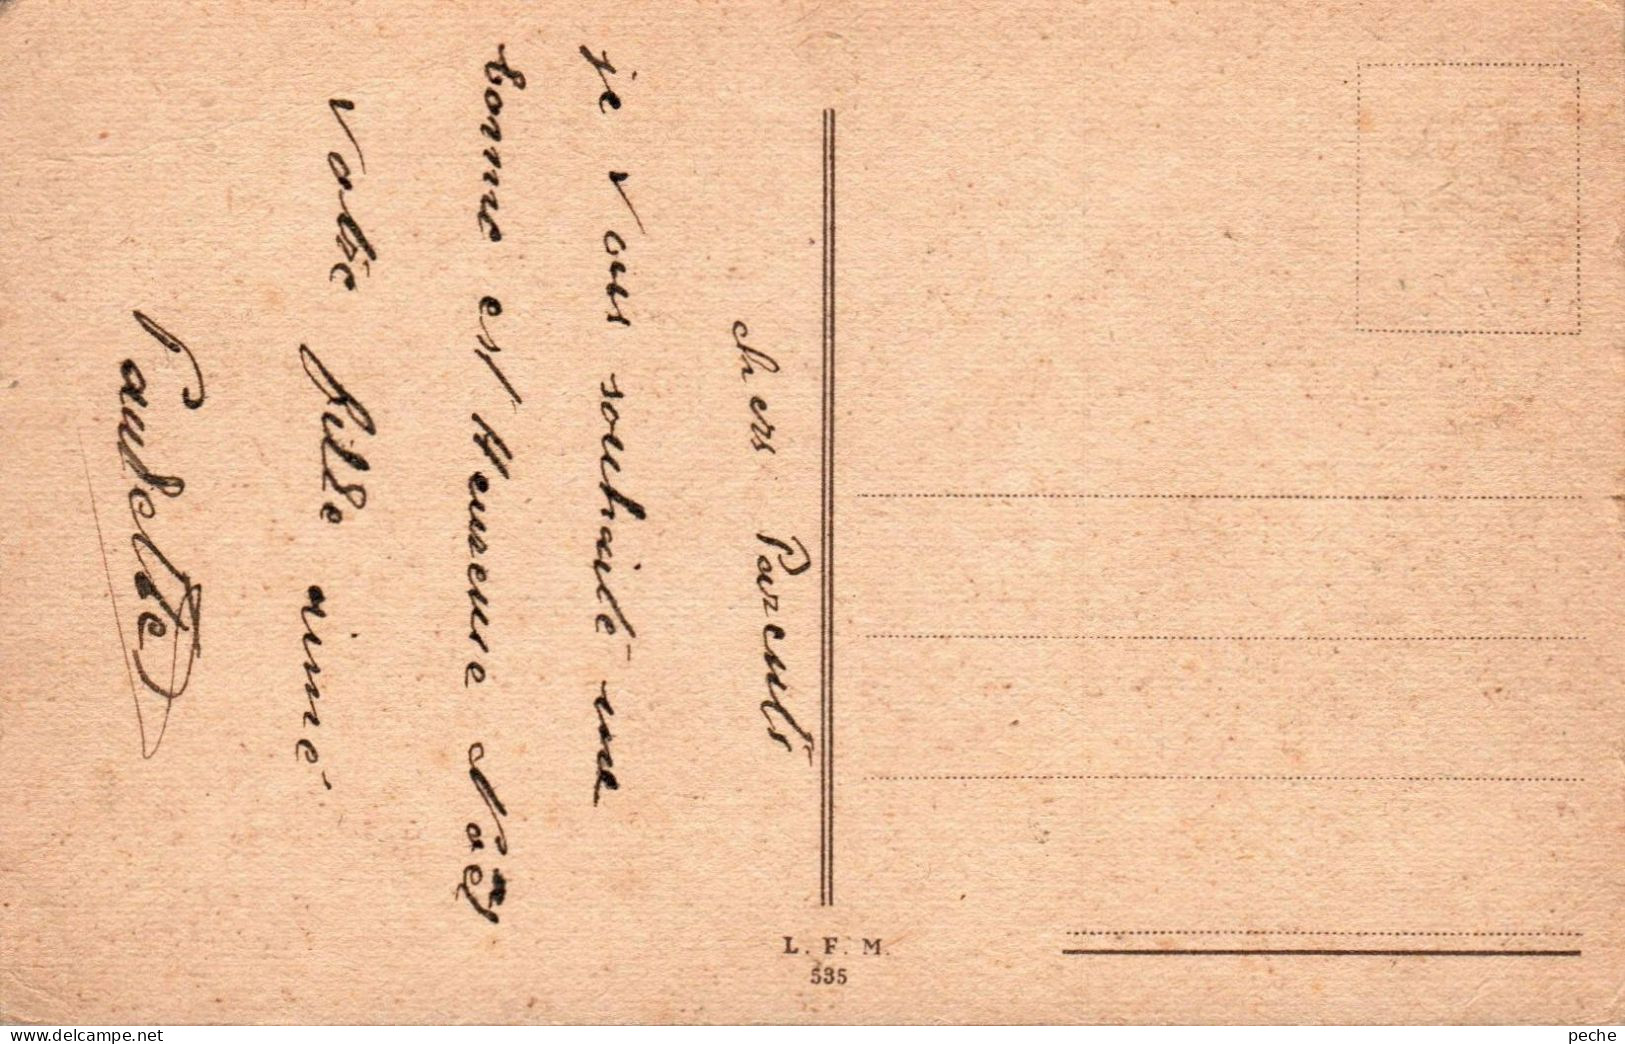 chers Parents
je Vous souhaite une
bonne et Heureuse Noël
Votre fille aimé
Paulette
L. F. M.
535
peche